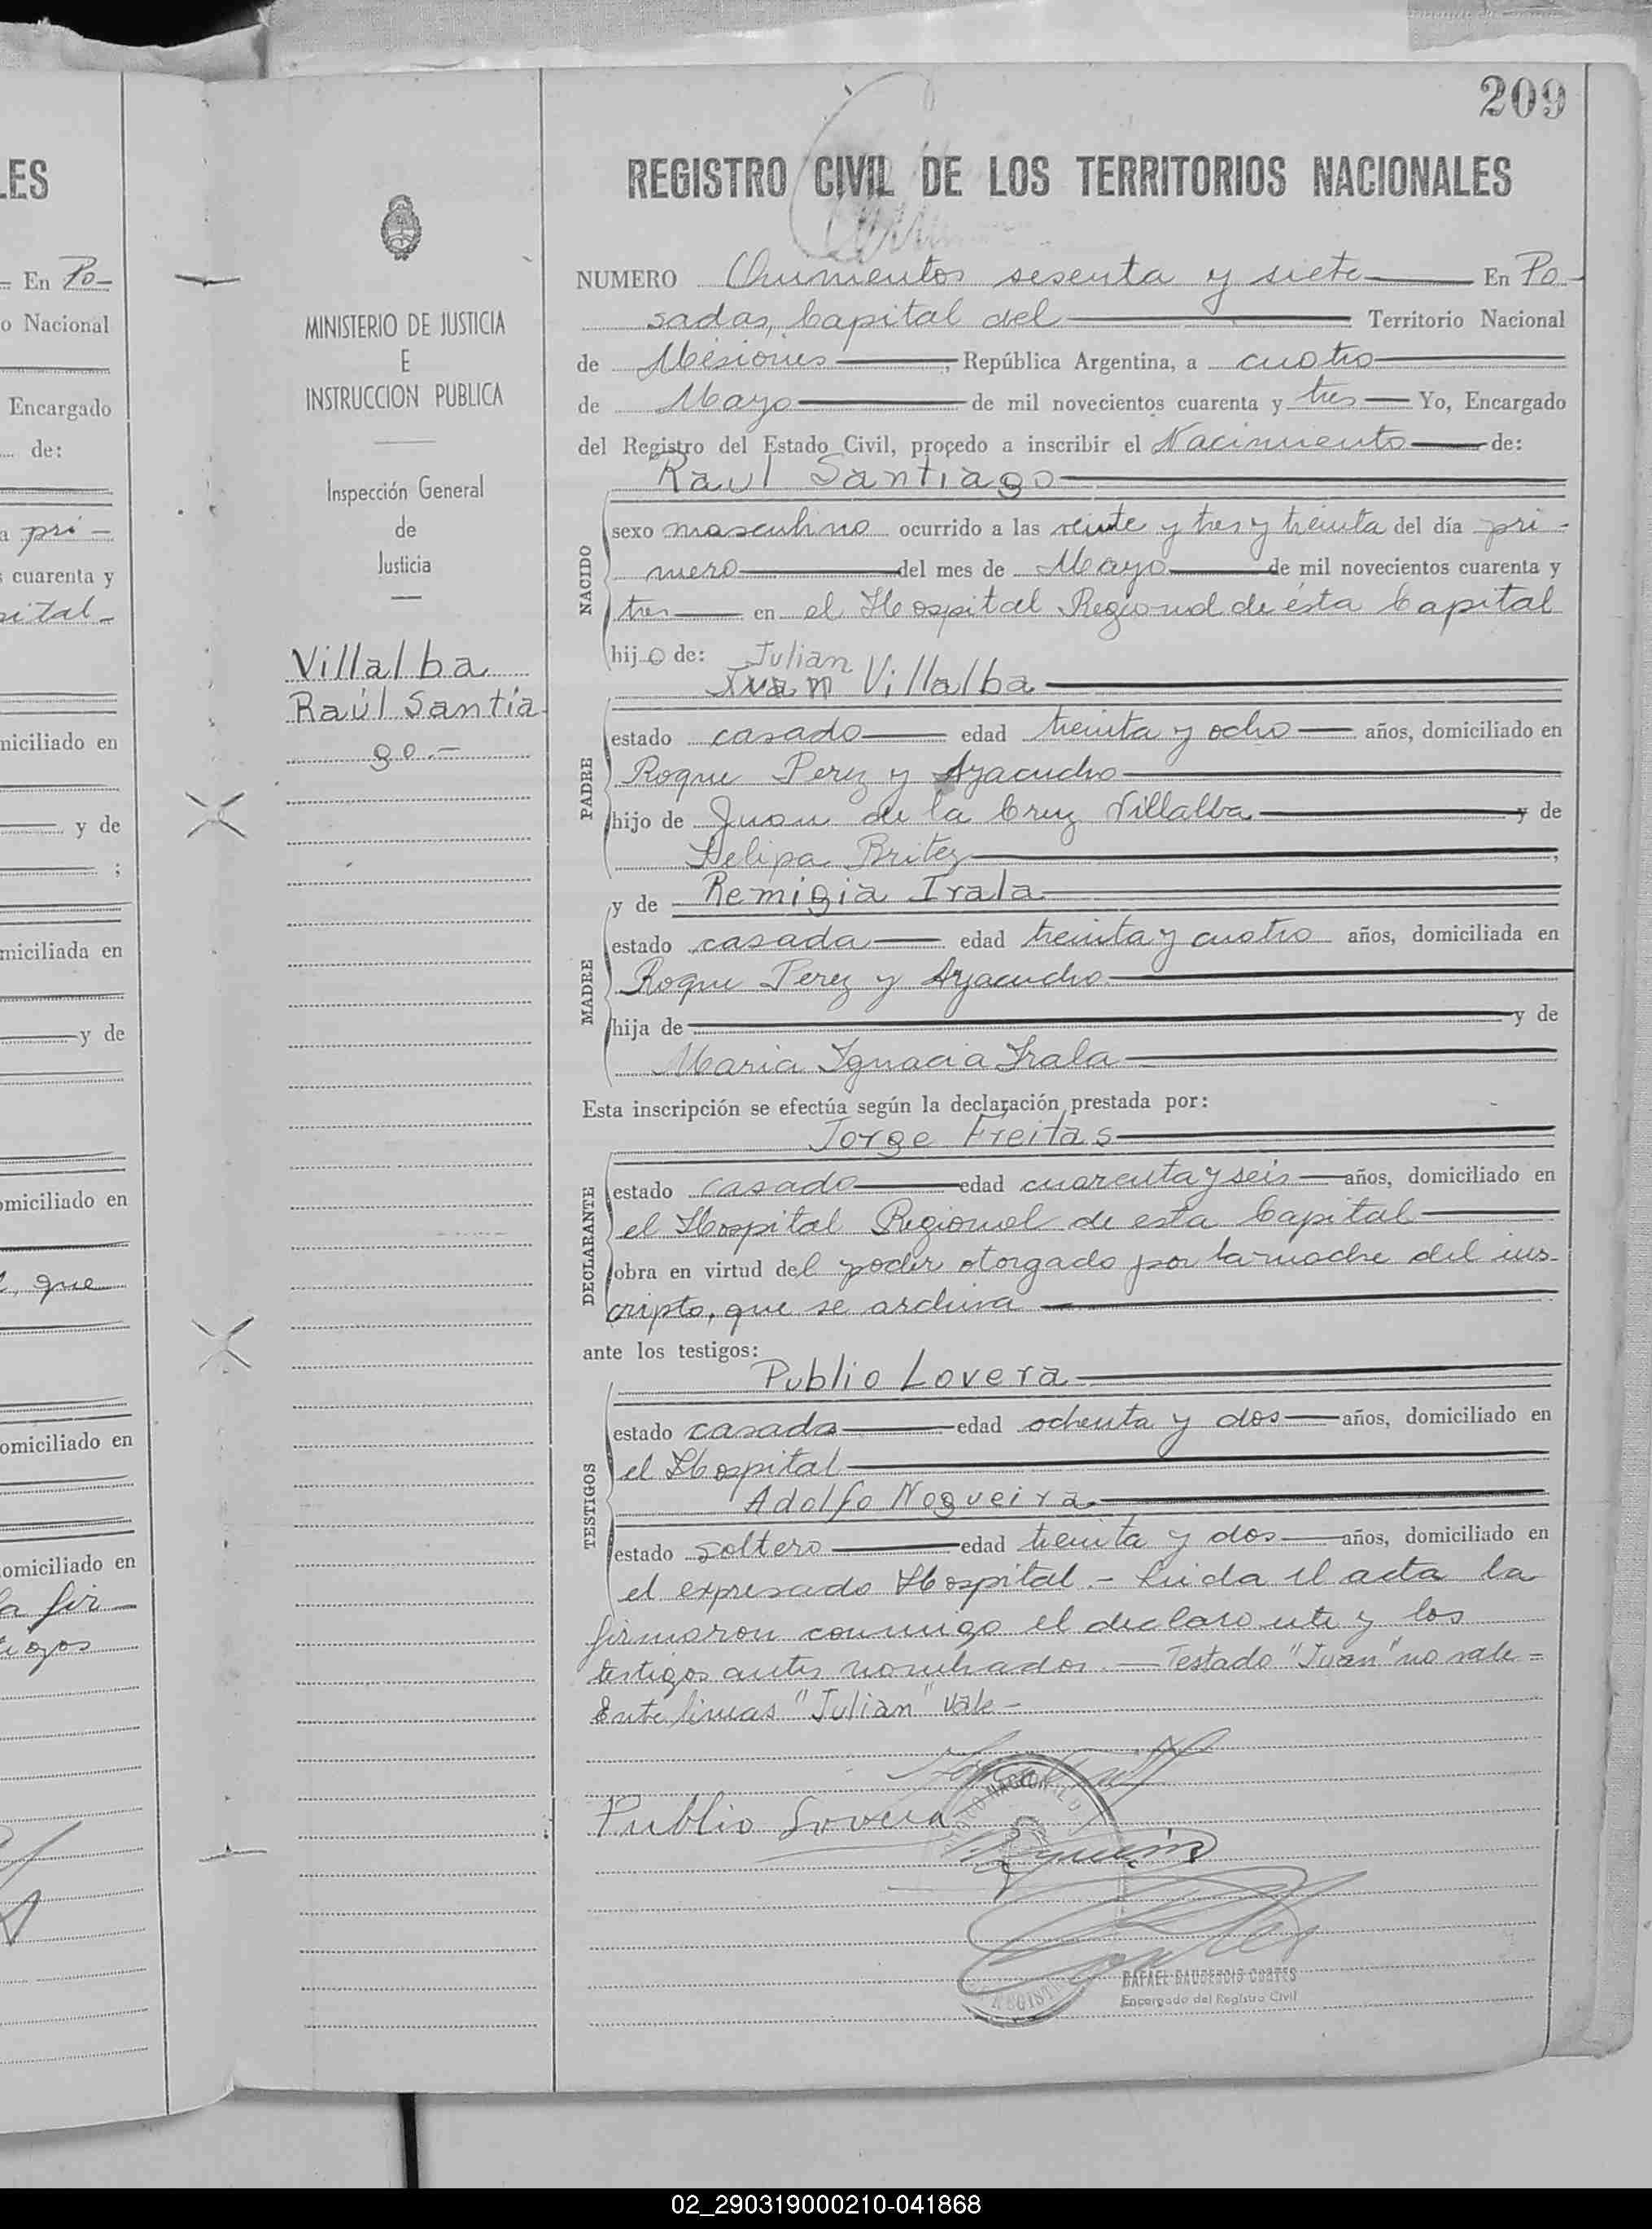 209
REGISTRO CIVIL DE LOS TERRITORIOS NACIONALES
LES
En Po-
o Nacional
Encargado
de:
a pri-
s cuarenta y
pital-
miciliado en
y de
;
miciliada en
y de
omiciliado en
que
omiciliado en
omiciliado en
la fir-
tigos
MINISTERIO DE JUSTICIA
E
INSTRUCCION PUBLICA
Inspección General
de
Justicia
Villalba
Raúl Santia-
go.-
NUMERO sesenta y siete En Po-
sadas, Capital del Territorio Nacional
de Misiones, República Argentina, a cuatro
de Mayo de mil novecientos cuarenta y tres Yo, Encargado
del Registro del Estado Civil, procedo a inscribir el Nacimiento de:
Raul Santiago
NACIDO
sexo masculino ocurrido a las veinte y tres y treinta del día pri-
mero del mes de Mayo de mil novecientos cuarenta y
tres en el Hospital Regional de ésta Capital
hijo de: Julian
Juan Villalba
PADRE
estado casado edad treinta y ocho años, domiciliado en
Roque Perez y Ayacucho
hijo de Juan de la Cruz Villalba y de
Felipa Britez,
y de Remigia Irala
MADRE
estado casada edad treinta y cuatro años, domiciliada en
Roque Perez y Ayacucho
hija de y de
Maria Ignacia Irala
Esta inscripción se efectúa según la declaración prestada por:
Jorge Freitas
DECLARANTE
estado casado edad cuarenta y seis años, domiciliado en
el Hospital Regional de esta Capital
obra en virtud del poder otorgado por la madre del ins-
cripto, que se archiva
ante los testigos:
Publio Lovera
TESTIGOS
estado casado edad ochenta y dos años, domiciliado en
el Hospital
Adolfo Nogueira
estado soltero edad treinta y dos años, domiciliado en
el expresado Hospital.- Leida el acta la
firmaron conmigo el declarante y los
testigos antes nombrados.- Testado "Juan" no vale=
Entre lineas "Julian" vale-
Publio Lovera
RAFAEL GAUDENCIO CORTES
Encargado del Registro Civil
02_290319000210-041868